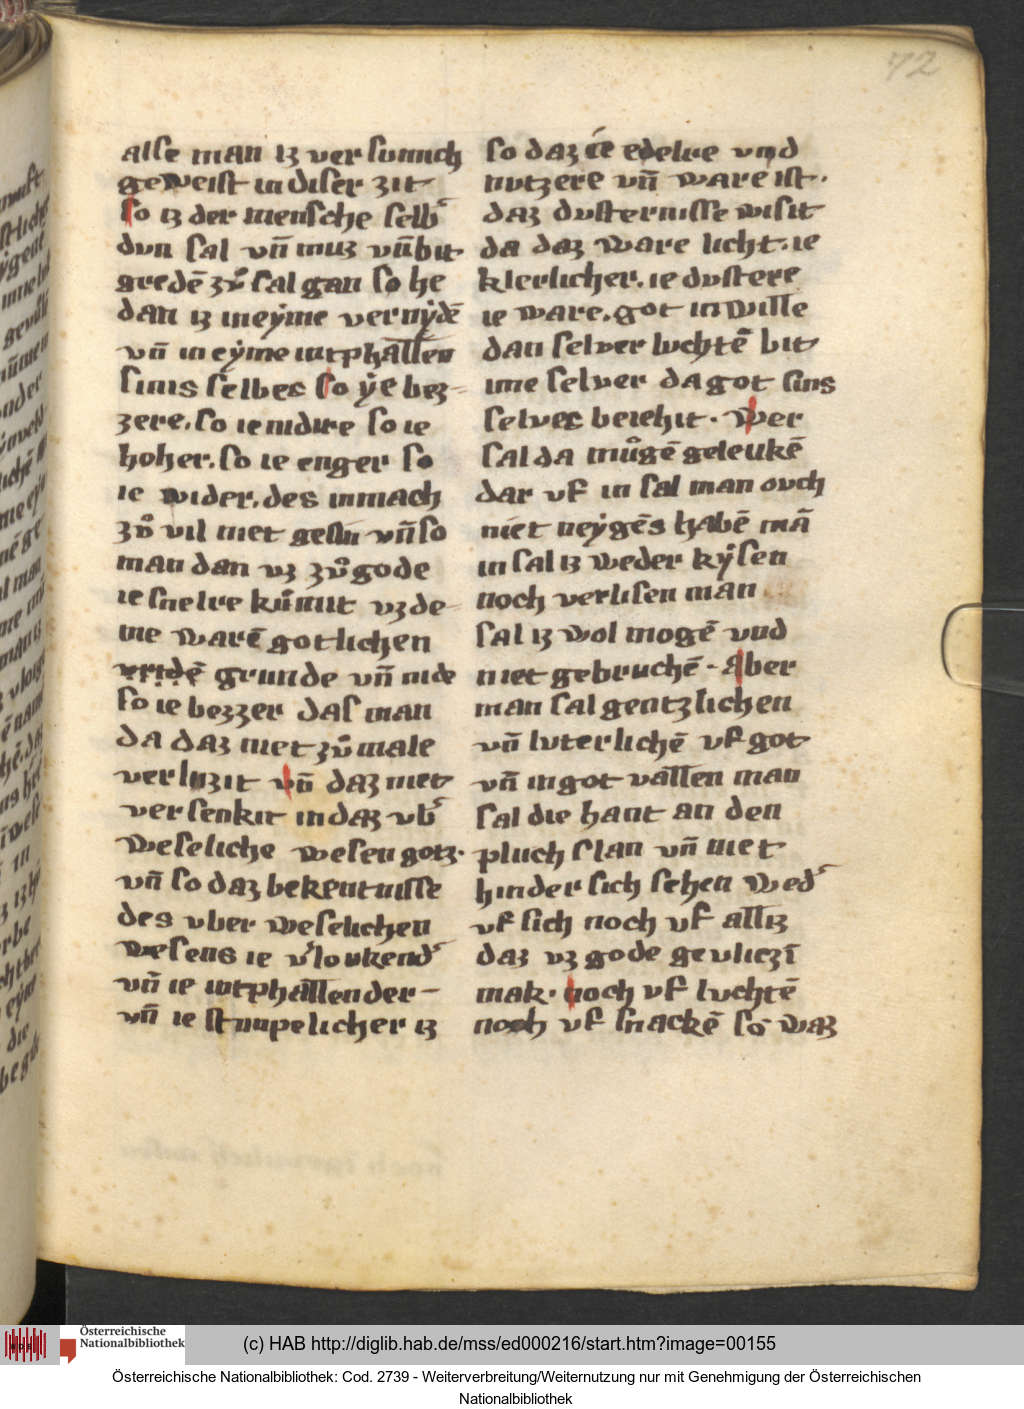 72
alse man iz ver sumich
geweist in diser zit
so iz der mensche selb͛
dun sal vn̄ muz vn̄ bit
gredē zv̊ sal gan so he
dan iz in eẏme vernẏdē
vn̄ in eẏme intphallen
sinis selbes so ẏe bez-
zere. so ie nidire so ie
hoher. so ie enger so
ie wider. des inmach
zv̊ vil niet gesin vn̄ so
man dan vz zv̊ gode
ie snelre kūmit vz de-
me warē gotlichen
vridē grunde vn̄ nide
so ie bezzer das man
da daz niet zv̊ male
verluzit vn̄ daz niet
versenkit in daz vb͛
weseliche wesen gotz.
vn̄ so daz bekentnisse
des vber weselichen
wesens ie v͛loukend͛
vn̄ ie intphallender-
vn̄ ie stuupelicher iz
so daz ie edelre vnd
nutzere vn̄ ware ist.
daz dusternisse wisit
da daz ware licht. ie
klerlicher. ie dustere
ie ware. got in wille
dan selver luchtē bit
ime selver da got sins
selves beiehit. Wer
sal da můgē geleukē
dar vf in sal man ouch
niet neẏgēs habē mā
in sal iz weder kẏsen
noch verlisen man
sal iz wol mogē vnd
niet gebruchē. Aber
man sal gentzlichen
vn̄ luterlichē vf got
vn̄ in got vallen man
sal die hant an den
pluch slan vn̄ niet
hinder sich sehen wed͛
vf sich noch vf alliz
daz vz gode gevliezī
mak. noch vf luchtē
noch vf snackē so waz
(c) HAB http://diglib.hab.de/mss/ed000216/start.htm?image=00155
Österreichische
Nationalbibliothek
Österreichische Nationalbibliothek: Cod. 2739 - Weiterverbreitung/Weiternutzung nur mit Genehmigung der Österreichischen
Nationalbibliothek